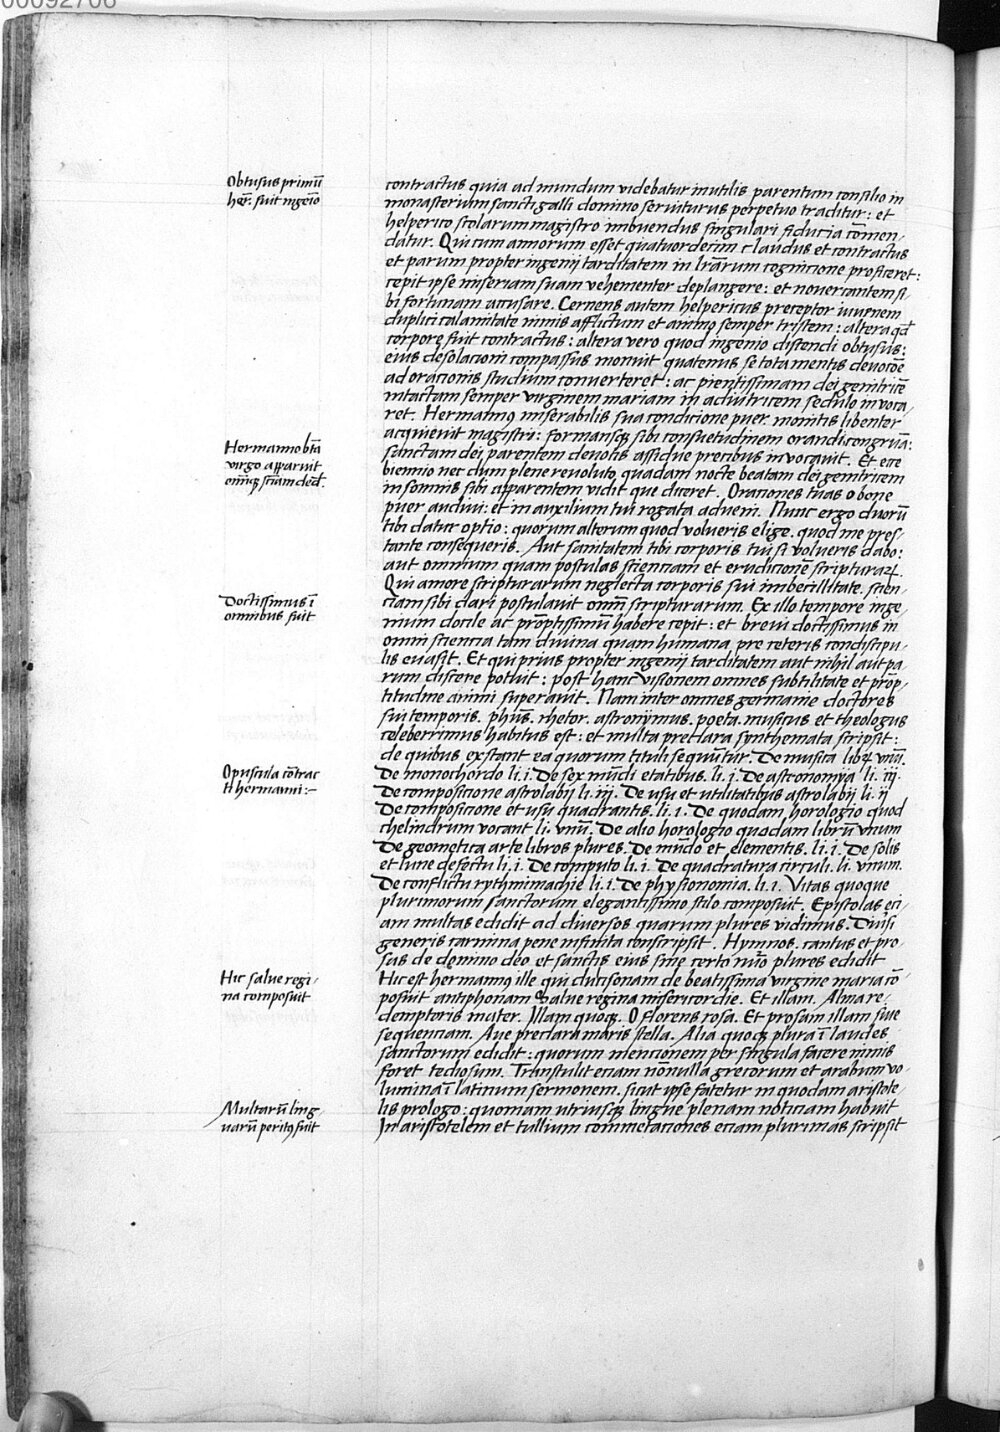 00092706
Obtusus primū
her. fuit ingeīo
contractus quia ad mundum videbatur inutilis parentum consilio in
monasterium sancti galli domino seruiturus perpetuo traditur: et
helperico scolarum magistro imbuendus singulari fiducia cōmen-
datur. Qui cum annorum esset quatuordecim claudus et contractus
et parum propter ingenij tarditatem in lrārum cognicione proficeret:
cepit ipse miseriam suam vehementer deplangere: et nouercantem si-
bi fortunam accusare. Cernens autem helpericus preceptor iuuenem
duplici calamitate nimis afflictum et animo semper tristem: altera qd
corpore fuit contractus: altera vero quod ingenio discendi obtusus:
eius desolacioni compassus monuit quatenus se tota mentis deuocōe
ad oracionis studium conuerteret: ac pientissimam dei genitricē
intactam semper virginem mariam in adiutricem sedulo inuoca-
ret. Hermannꝰ miserabilis sua condicione puer. monitis libenter
acquieuit magistri: formansqꝫ sibi consuetudinem orandi congruā:
Hermanno btā
virgo apparuit
omnēqꝫ sciam ded.
sanctam dei parentem deuotis assidue precibus inuocauit. Et ecce
biennio nec dum plene reuoluto, quadam nocte beatam dei genitricem
in somnis sibi apparentem vidit que diceret. Oraciones tuas o bone
puer audiui: et in auxilium tui rogata adueni. Nunc ergo duorū
tibi datur optio: quorum alterum quod volueris elige. quod me pres-
tante consequeris. Aut sanitatem tibi corporis tui si volueris dabo:
aut omnium quam postulas scienciam et erudicionē scripturaꝝ.
Qui amore scripturarum neglecta corporis sui imbecillitate. scien-
Doctissimus ī
omnibus fuit
ciam sibi dari postulauit omnī scripturarum. Ex illo tempore inge-
nium docile ac prōptissimū habere cepit: et breui doctissimus in
omni sciencia tam diuina quam humana pre ceteris condiscipu-
lis euasit. Et qui prius propter ingenij tarditatem aut nihil aut pa-
rum discere potuit: post hanc visionem omnes subtilitate et prōp-
titudine animi superauit. Nam inter omnes germanie doctores
sui temporis. phūs. rhetor. astronymus. poeta. musicus et theologus
celeberrimus habitus est: et multa preclara synthemata scripsit:
de quibus exstant ea quorum tituli sequūtur. De musica libꝝ vnū.
Opuscula cōtrac
ti hermanni:-
De monochordo li. i. De sex mūdi etatibus. li. i. De astronomya li. iij.
De composicione astrolabij li. iij. De usu et utilitatibus astrolabij li. ij
De composicione et usu quadrantis. li. i. De quodam horologio quod
chelindrum vocant li. vnū. De alio horologio quodam librū vnum
De geometica arte libros plures. De mūdo et elementis. li. i. De solis
et lune defectu li. i. De computo li. i. De quadratura circuli. li. vnum.
De conflictu rythmimachie li. i. De physionomia. li. i. Vitas quoque
plurimorum sanctorum elegantissimo stilo composuit. Epistolas eci-
am multas edidit ad diuersos quarum plures vidimus. Diuisi
generis carmina pene infinita conscripsit. Hymnos. cantus et pro-
sas de domino deo et sanctis eius sine certo nūo plures edidit
Hic salue regi-
na composuit
Hic est hermannꝰ ille qui dulcisonam de beatissima virgine maria cō-
posuit antiphonam Salue regina misericordie. Et illam. Alma re-
demptoris mater. Illam quoqꝫ. O florens rosa. Et prosam illam siue
sequenciam. Aue preclara maris stella. Alia quoqꝫ plura ī laudes
sanctorum edidit: quorum mencionem per singula facere nimis
foret tediosum. Transtulit eciam nōnulla grecorum et arabum vo-
lumina ī latinum sermonem. sicut ipse fatetur in quodam aristote-
Multarū ling-
uarū peritꝰ fuit
lis prologo: quoniam utriusqꝫ lingue plenam noticiam habuit
In aristotelem et tullium commetaciones eciam plurimas scripsit